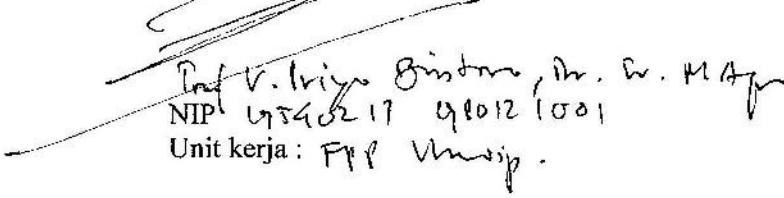 Prof V. Priyo Bintoro, Dr. Ir. M Agr
NIP 19540217 198012 1001
Unit kerja : FPP Undip.